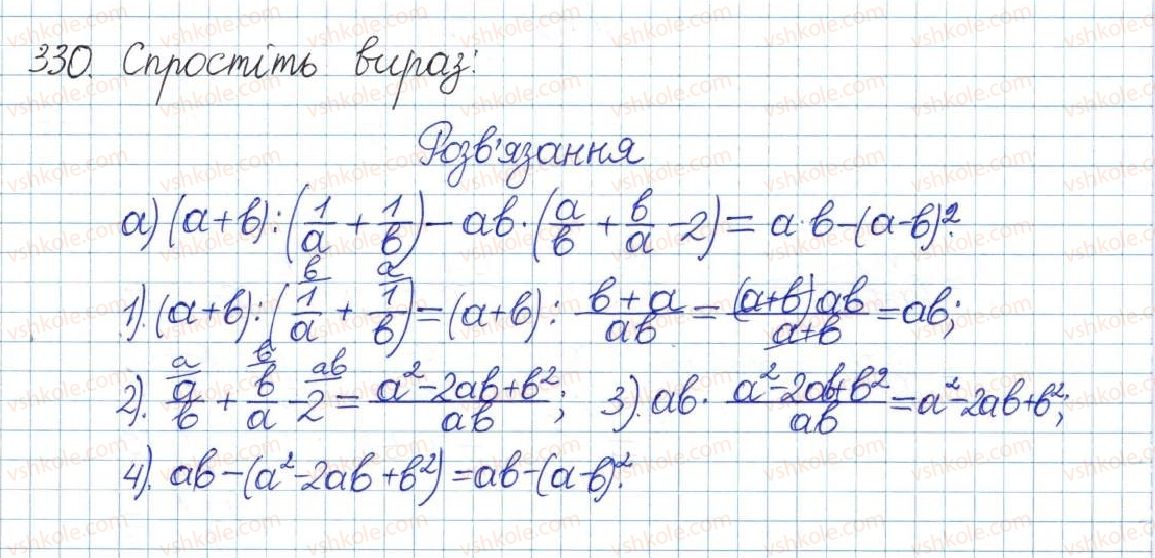 330. Спростіть вираз:
Розв'язання
а) (a+b):(1/a + 1/b) - ab·(a/b + b/a - 2) = a·b-(a-b)².
1). (a+b):(1/a + 1/b) = (a+b): (b+a)/(ab) = (a+b)ab/(a+b) = ab;
2). a/b + b/a - 2 = (a²-2ab+b²)/(ab); 3). ab·(a²-2ab+b²)/(ab) = a²-2ab+b²;
4). ab-(a²-2ab+b²)=ab-(a-b)².